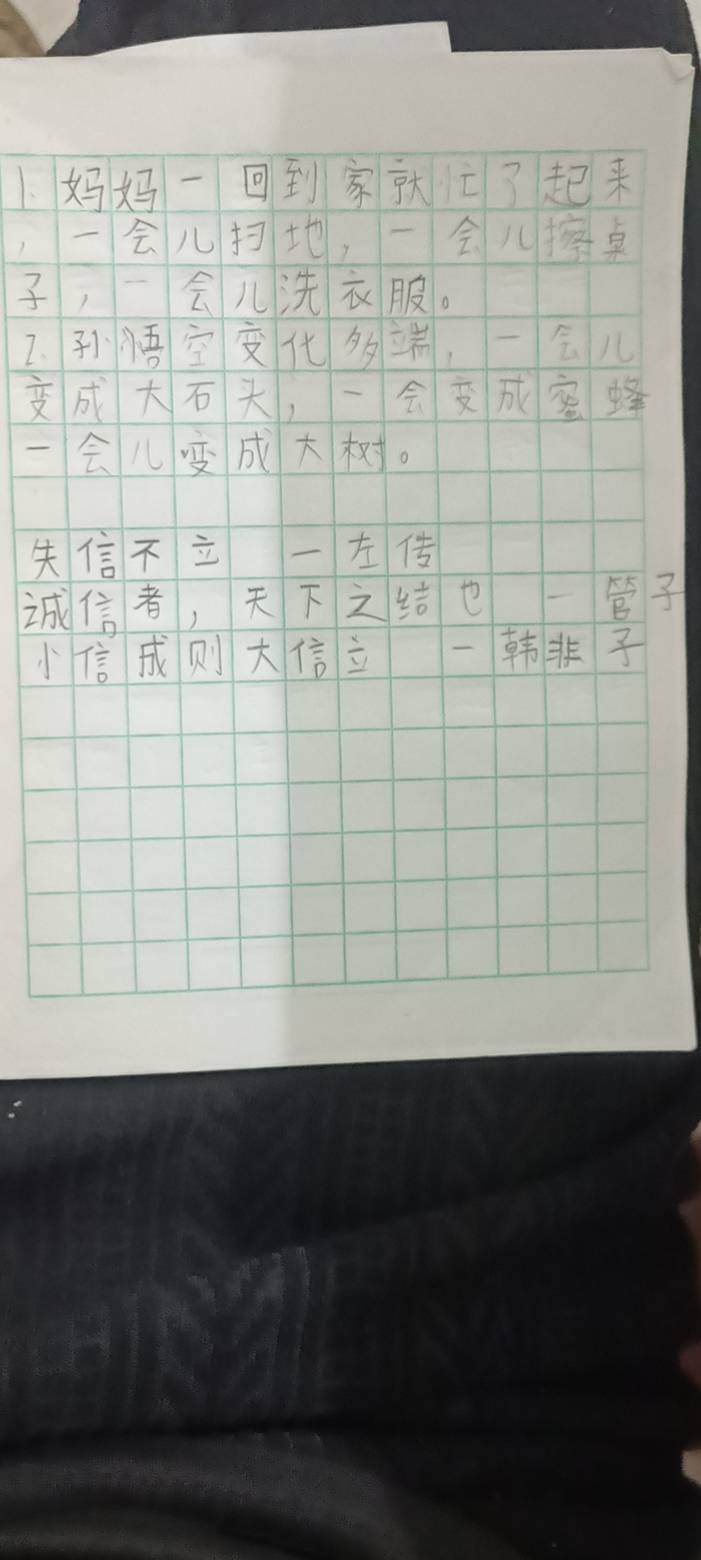 1.妈妈一回到家就忙了起来
，一会儿扫地，一会儿擦桌
子，一会儿洗衣服。
2.孙悟空变化多端，一会儿
变成大石头，一会变成蜜蜂
一会儿变成大树。
失信不立 一左传
诚信者，天下之结也 一管子
小信成则大信立 一韩非子